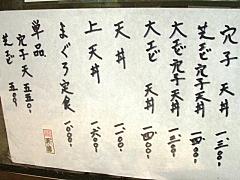 穴子天丼 一、三〇〇
芝エビ穴子天丼 一、三〇〇
大エビ穴子天丼 一、三〇〇
大エビ天丼 一、四〇〇
天丼 一、一〇〇
上天丼 一、六〇〇
まぐろ定食 一、〇〇〇
単品
穴子天 五五〇
芝エビ 五〇〇